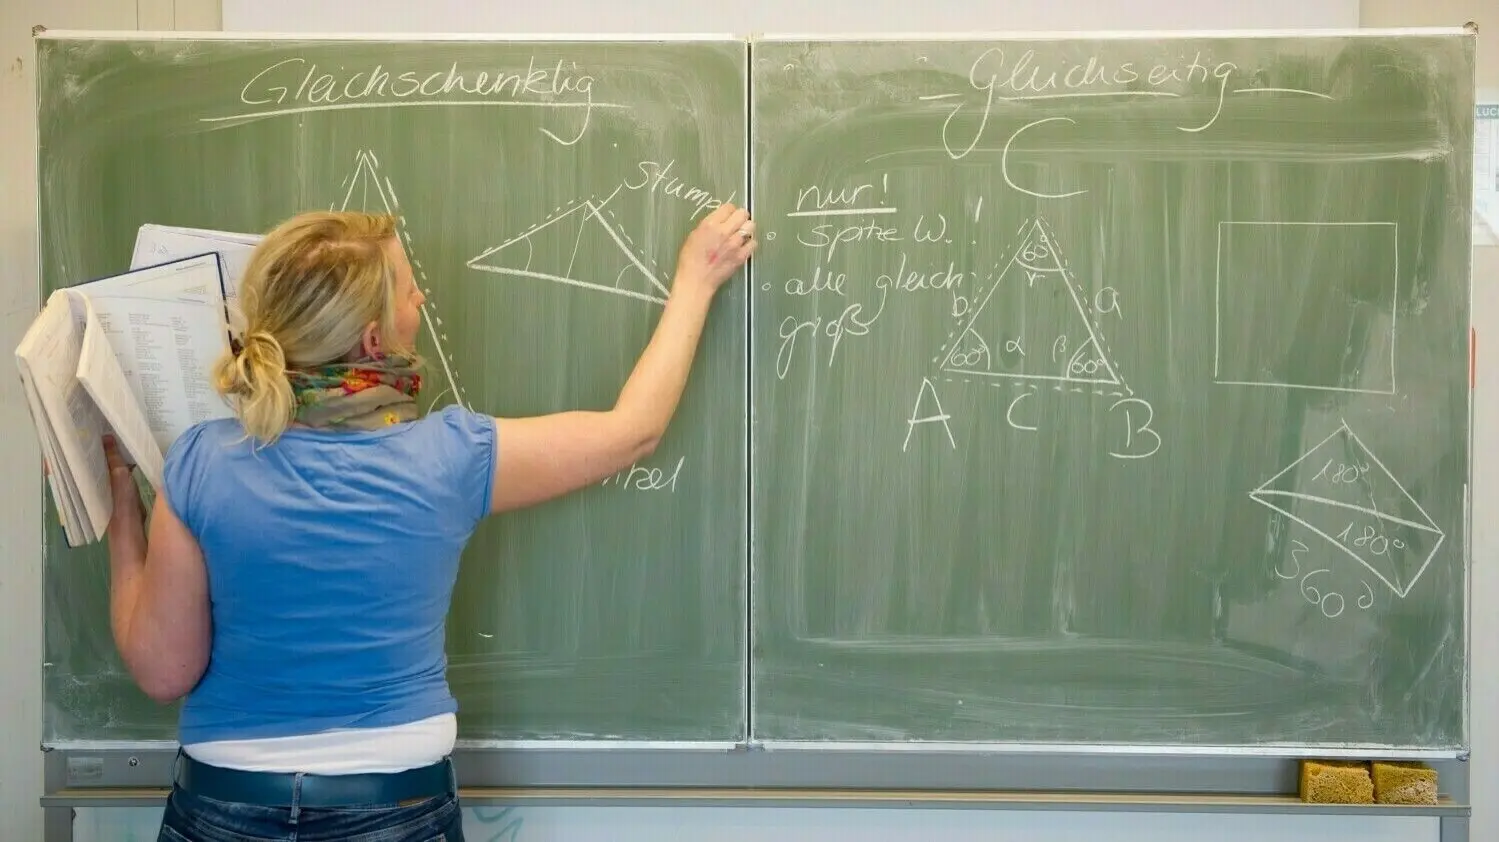 Gleichschenklig
Stump
Gleichseitig
nur!
spitze W. !
alle gleich
groß
C
60°
γ
b
a
60°
α
β
60°
A
c
B
180°
180°
360°
LUC